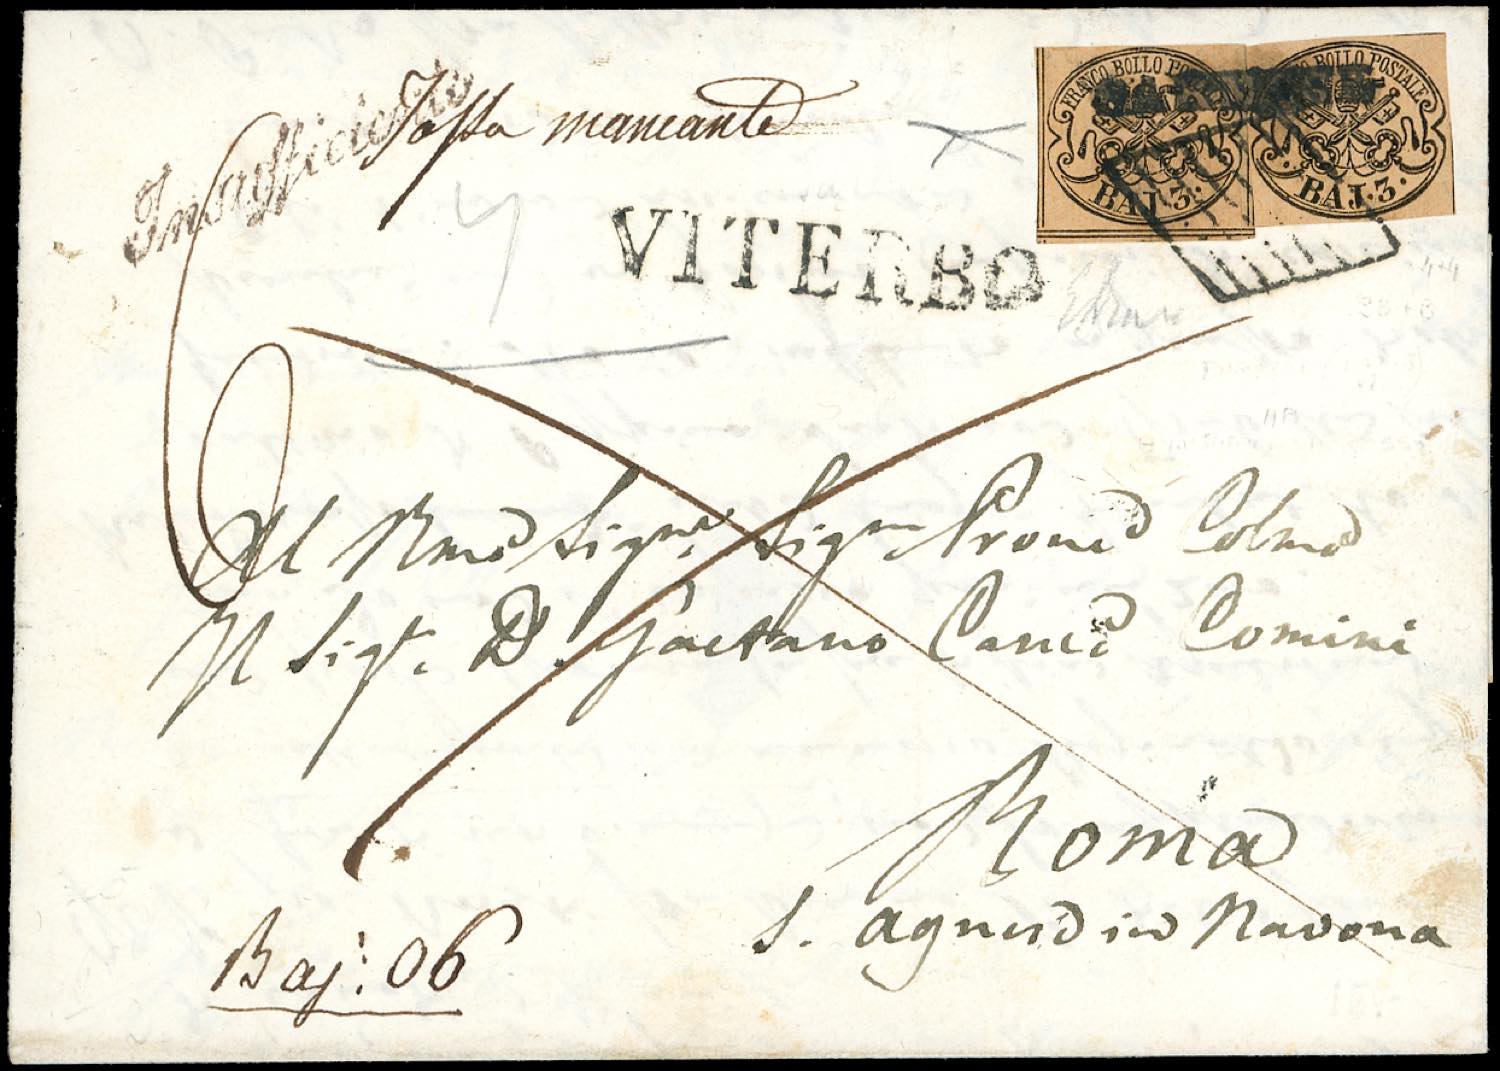 Insufficiente
Tassa mancante
FRANCO BOLLO POSTALE
BAJ. 3.
BOLLO POSTALE
BAJ. 3.
VITERBO
6
Al Rmo Sigre Sigr Prone Colmo
Il Sigr. D. Gaetano Canco Comini
Roma
S. Agnese in Navona
Baj: 06